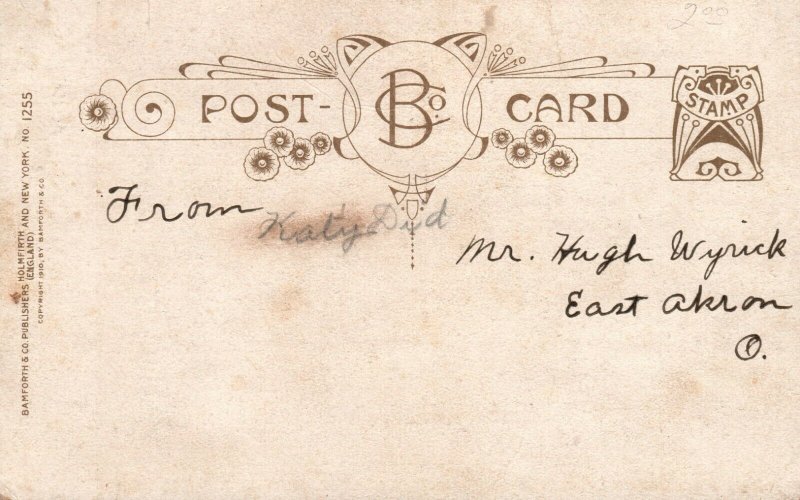 2 00
POST- B Co CARD
STAMP
From Katy Did
Mr. Hugh Wyrick
East Akron
O.
BAMFORTH & CO. PUBLISHERS HOLMFIRTH AND NEW YORK. NO. 1255
(ENGLAND)
COPYRIGHT 1910, BY BAMFORTH & CO.